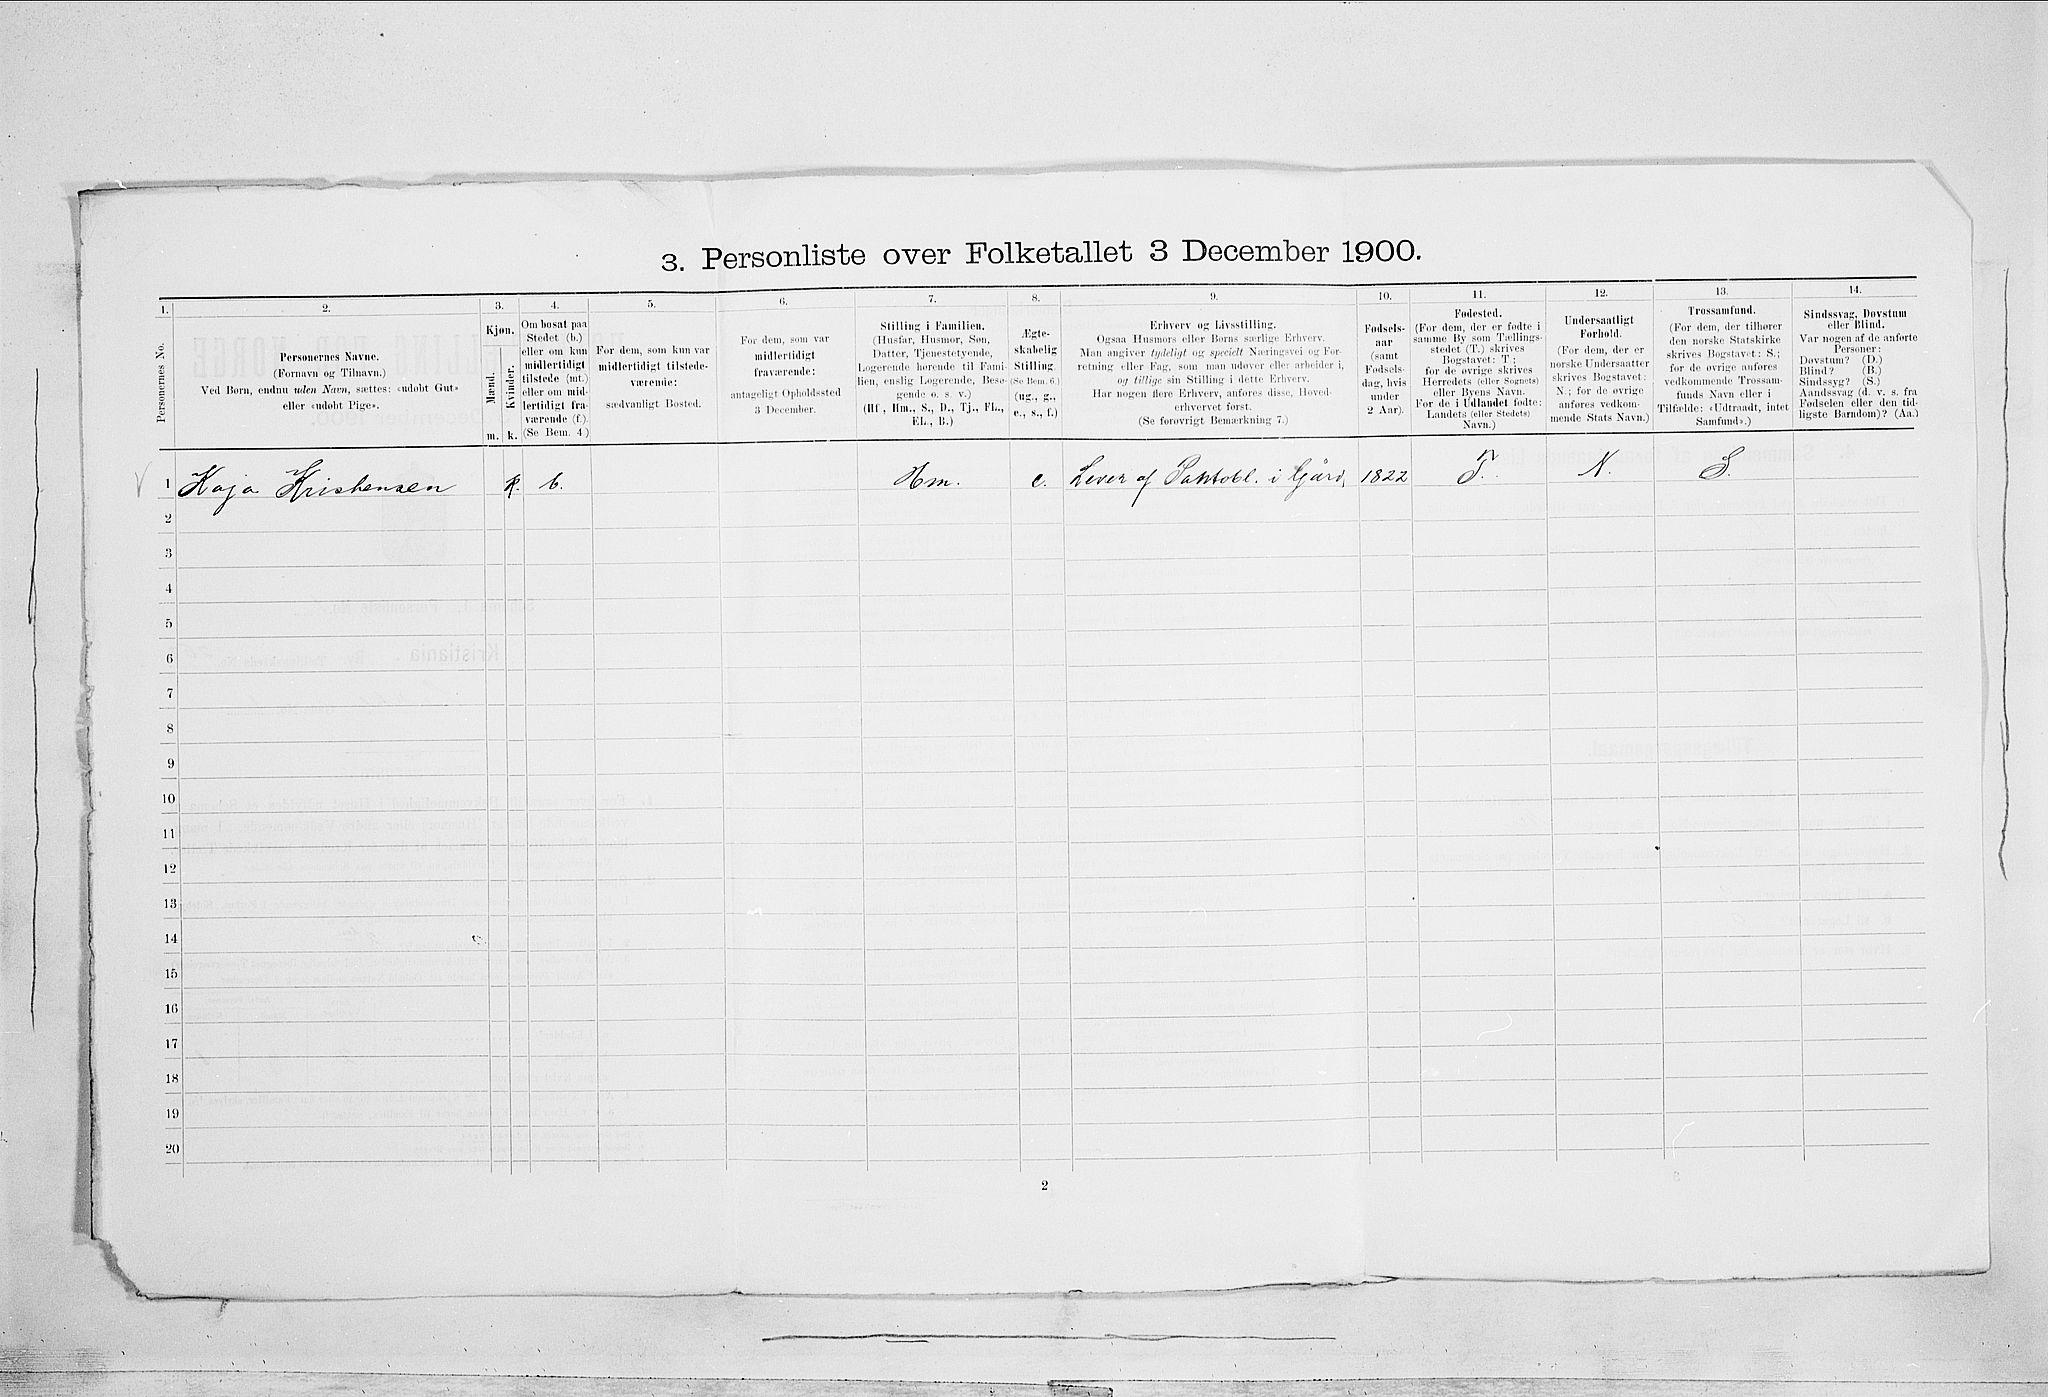 3. Personliste over Folketallet 3 December 1900.
1.
Personernes No.
2.
Personernes Navne.
(Fornavn og Tilnavn.)
Ved Børn, endnu uden Navn, sættes: «udøbt Gut»
eller «udøbt Pige».
3.
Kjøn.
Mænd.
Kvinder.
m. k.
4.
Om bosat paa
Stedet (b.)
eller om kun
midlertidigt
tilstede (mt.)
eller om mid-
lertidigt fra-
værende (f.).
(Se Bem. 4.)
5.
For dem, som kun var
midlertidigt tilstede-
værende:
sædvanligt Bosted.
6.
For dem, som var
midlertidigt
fraværende:
antageligt Opholdssted
3 December.
7.
Stilling i Familien.
(Husfar, Husmor, Søn,
Datter, Tjenestetyende,
Logerende hørende til Fami-
lien, enslig Logerende, Besø-
gende o. s. v.)
(Hf., Hm., S., D., Tj., FL.,
EL., B.)
8.
Ægte-
skabelig
Stilling.
(Se Bem. 6.)
(ug., g.,
e., s., f.)
9.
Erhverv og Livsstilling.
Ogsaa Husmors eller Børns særlige Erhverv.
Man angiver tydeligt og specielt Næringsvei og For-
retning eller Fag, som man udøver eller arbeider i,
og tillige sin Stilling i dette Erhverv.
Har nogen flere Erhverv, anføres disse, Hoved-
erhvervet først.
(Se forøvrigt Bemærkning 7.)
10.
Fødsels-
aar
(samt
Fødsels-
dag, hvis
under
2 Aar).
11.
Fødested.
(For dem, der er fødte i
samme By som Tællings-
stedet (T.) skrives
Bogstavet: T;
for de øvrige skrives
Herredets (eller Sognets)
eller Byens Navn.
For de i Udlandet fødte:
Landets (eller Stedets)
Navn.)
12.
Undersaatligt
Forhold.
(For dem, der er
norske Undersaatter
skrives Bogstavet:
N.; for de øvrige
anføres vedkom-
mende Stats Navn.)
13.
Trossamfund.
(For dem, der tilhører
den norske Statskirke
skrives Bogstavet: S.;
for de øvrige anføres
vedkommende Trossam-
funds Navn eller i
Tilfælde: «Udtraadt, intet
Samfund».)
14.
Sindssvag, Døvstum
eller Blind.
Var nogen af de anførte
Personer:
Døvstum? (D.)
Blind? (B.)
Sindssyg? (S.)
Aandssvag (d. v. s. fra
Fødselen eller den tid-
ligste Barndom)? (Aa.)
1 Kaja Kristensen k. b. Hm. e. Lever af Panteobl. i Gård, 1822 T. N. S.
2
3
4
5
6
7
8
9
10
11
12
13
14
15
16
17
18
19
20
2